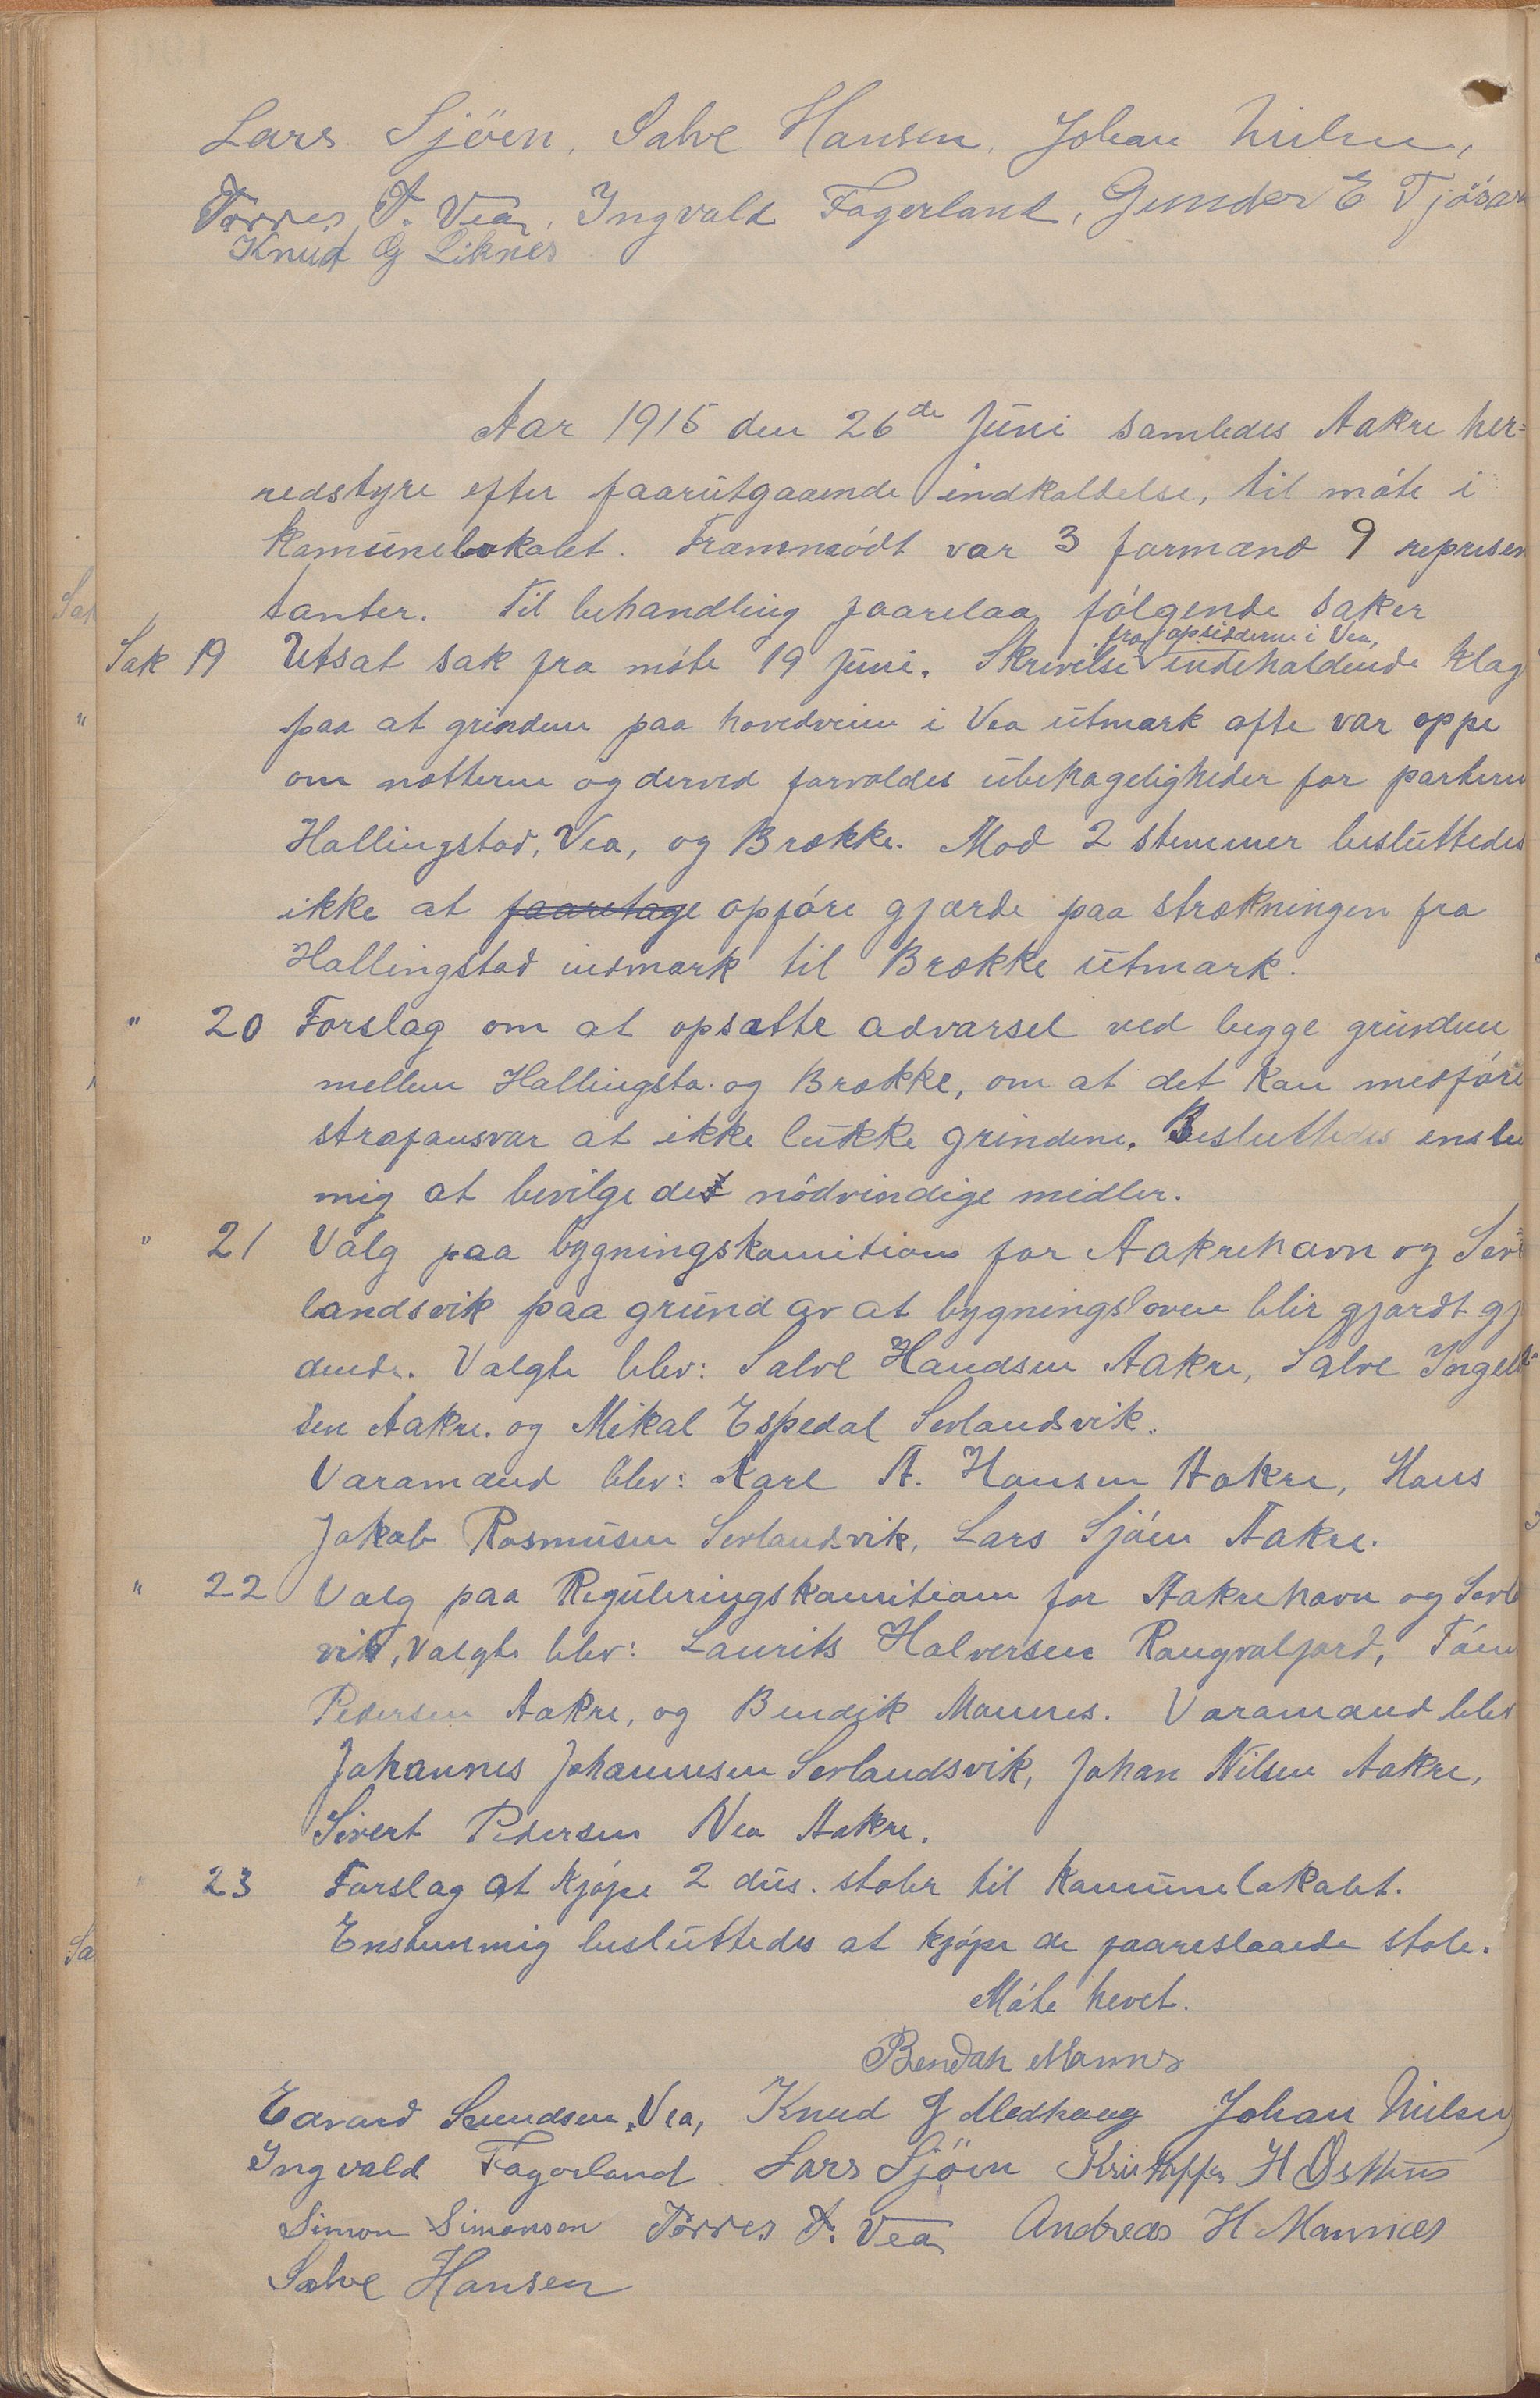 Lars Sjöen, Salve Hansen, Johan Nilsen,
Törres T. Vea, Ingvald Fagerland, Gunder E Tjösvo
Knud G Liknes
Aar 1915 den 26de Juni samledes Aakre her=
redstyre efter faarutgaaende indkaldelse, til móte i
Komunelokalet. Frammódt var 3 formænd 9 represen
tanter. Til behandling faarelaa fólgende saker
fra opsidderne i Vea,
Sak 19 Utsat sak fra móte 19 Juni. Skrivelse indeholdende klag
paa at grinden paa hovedveien i Vea utmark ofte var oppe
om nætterne og derved forvoldes ubehageligheder for partern
Hallingstad, Vea, og Brække. Mod 2 stemmer besluttedes
ikke at faaretage opfóre gjærde paa strækningen fra
Hallingstad indmark til Brække utmark.
" 20 Forslag om at opsætte advarsel ved begge grinden
mellem Hallingsta. og Brække, om at det kan medfóre
strafansvar at ikke lukke grindene. Besluttedes enste
mig at bevilge det nódvendige midler.
" 21 Valg paa bygningskomition for Aakrehavn og Sev=
landsvik paa grund av at bygningsloven blir gjordt gj
dende. Valgte blev: Salve Handsen Aakre, Salve Ingebr=
sen Aakre. og Mikal Espedal Sevlandsvik.
Varamænd blev: Karl A. Hansen Aakre, Hans
Jakob Rasmusen Sevlandsvik, Lars Sjóen Aakre.
" 22 Valg paa Reguleringskomitioen for Aakrehavn og Sevl
vik, Valgte blev: Laurits Halversen Rangvaljord, Tón
Pedersen Aakre, og Bendik Mannes. Varamænd blev
Johannes Johannesen Sevlandsvik, Johan Nilsen Aakre,
Sivert Pedersen Nea Aakre.
" 23 Forslag at kjópe 2 dus. stoler til Komunelokalet.
Enstemmig besluttedes at kjópe de faareslaaede stole.
Móte hevet.
Bendik Mannes
Edvard Simdsen, Vea, Knud J Medhaug Johan Nilsen
Ingvald Fagerland Lars Sjöen Kristoffer H Östhus
Simon Simonsen Törres T. Vea Andreas H Mannes
Salve Hansen